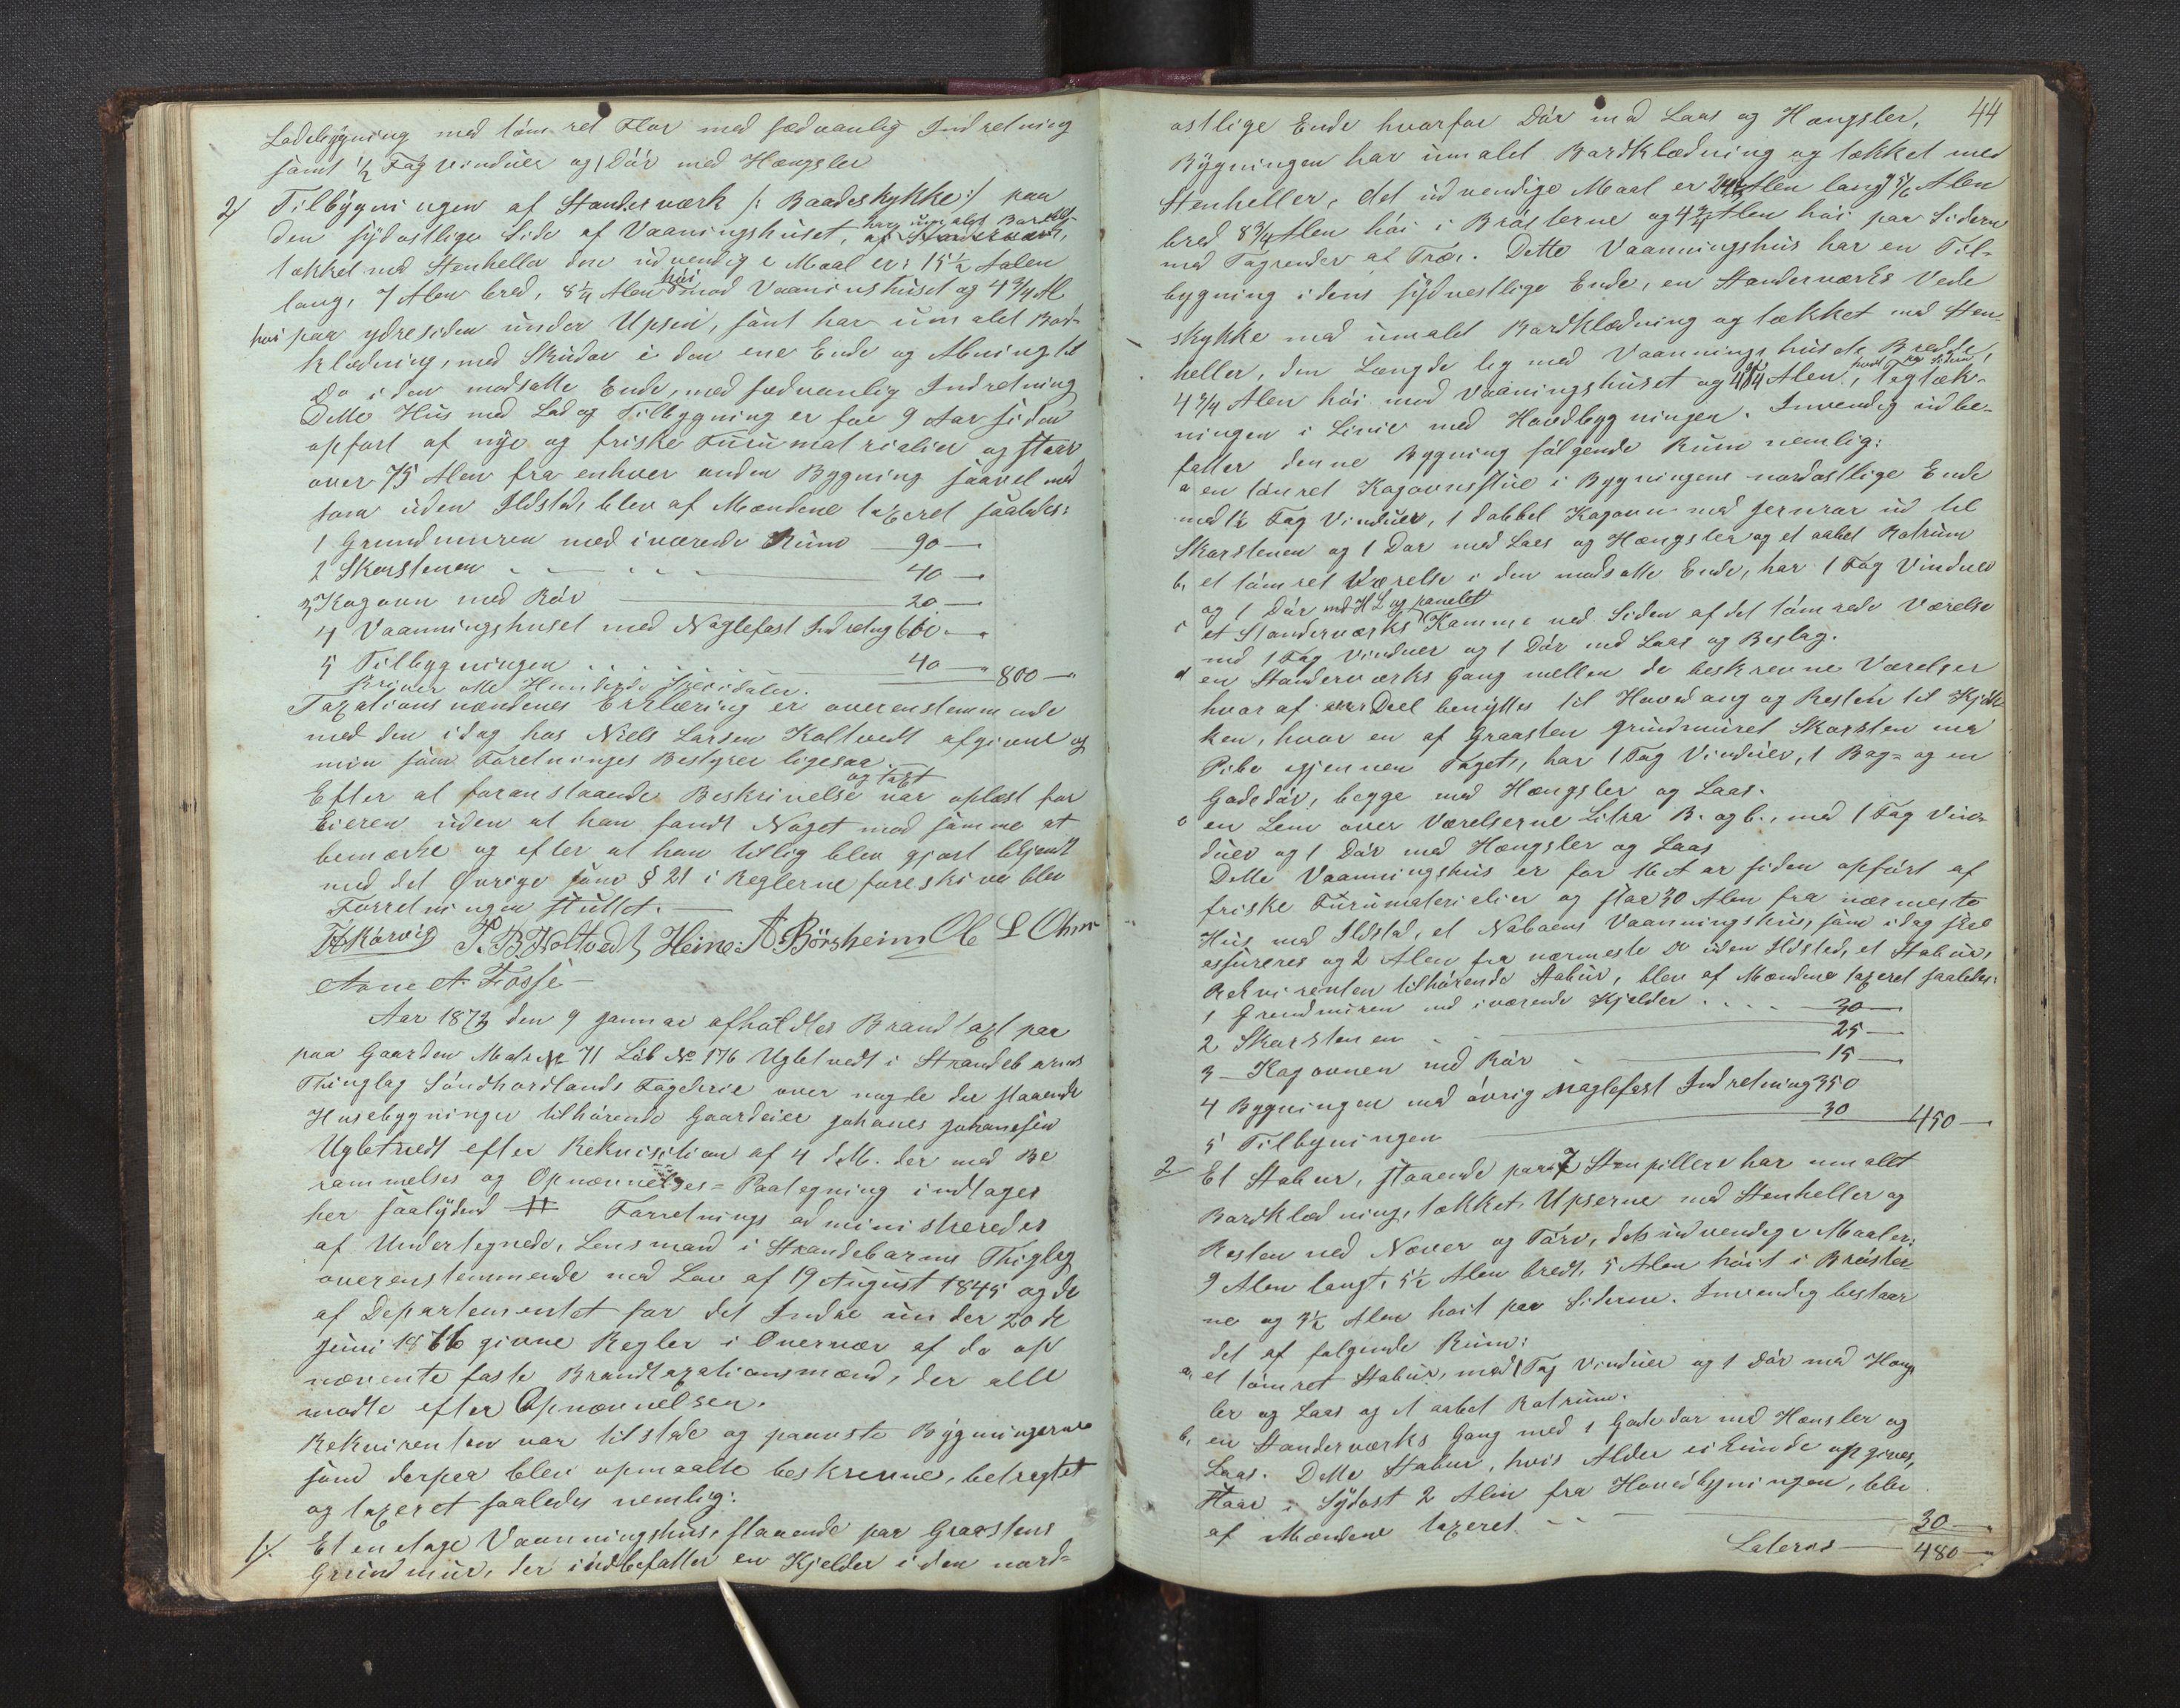 Ladebygning med tømret Flor med sædvanlig Indretning
samt ½ Fag vinduer og 1 Dør med Hængsler
2/ Tilbygningen af Standerværk /: Baadeskykke :/ paa
den sydostlige Side af Vaaningshuset, har umalet Bordkl
tækket med Stenheller den udvendige Maal er: 15½ Aalen
lang, 7 Alen bred, 8¼ Alen høi mod Vaaninshuset og 4¾ Al
høi paa ydresiden under Upsen, samt har umalet Bord-
klædning, med Skudør i den ene Ende og Abning til
Do i den modsatte Ende, med sædvanlig Indretning
Dette Hus med Lad og Tilbygning er for 9 Aar siden
opført af nye og friske Furumatrialier og staar
over 75 Alen fra enhver anden Bygning saavel med
som uden Ildsted, blev af Mændene taxeret saaledes:
1 Grundmuren med iværende Rum — 90 —
2 Skorstenen — 40 —
3 Kogovn med Rør — 20 —
4 Vaanningshuset med Naglefast Indretng 610 —
5 Tilbygningen . . . . 40 — 800 —
Skriver otte Hundrede Speciedaler.
Taxationsmændenes Erklæring er overenstemmende
med den idag hos Niels Larsen Koltvedt afgivne og
min som Foretninges Bestyrer ligesaa.
Efter at foranstaaende Beskrivelse og taxt var oplæst for
Eieren uden at han fandt Noget mod samme at
bemærke og efter at han tillig blev gjort bekjendt
med det Øvrige som § 21 i Reglerne foreskriver blev
Forretningen sluttet. —
P. B. Koltvedt Heine A. Börsheim Ole L Ohm
Arne A. Fosse —
Aar 1873 den 9 Januar afholdtes Brandtaxt paa
paa Gaarden Matr № 71 Løb № 176 Ugletvedt i Strandebarms
Thinglag Söndhordlands Fogderie over nogle der staaende
Husebygninger tilhørende Gaardeier Johanes Johannesen
Ugletvedt efter Rekvisition af 4 d. M. der med Be
rammelses og Opnævnelses-Paategning indtages
her saalydend # Forretnings administreredes
af Undertegnede, Lensmand i Strandebarms Thiglag
overenstemmende med Lov af 19 August 1845 og de
af Departementet for det Indre under 20 de
Juni 1866 givne Regler i Overvær af de op
nævnte faste Brandtaxationsmænd, der alle
mødte efter Opnævnelsen.
Rekvirenten var tilstede og paaviste Bygningerne
som derpaa blev opmaalte beskrevne, betragtet
og taxeret saaledes nemlig:
1/. Et en etage Vaanningshus, staaende paa Graastens
Grundmur, der indbefatter en Kjelder i den nord-
44
ostlige Ende hvorfor Dør med Laas og Hængsler,
Bygningen har umalet Bordklædning og tækket med
Stenheller, det udvendige Maal er Alen lang Alen
bred 8¾ Alen høi i Brøsterne og 4¾ Alen høi paa Siderne
med Tagrender af Træ. Dette Vaanningshus har en Til-
bygning i dens sydvestlige Ende, en Standerværks Vede
skykke med umalet Bordklædning og tækket med Sten-
heller, den Længde lig med Vaanningshusets Bredde,
4¾ Alen høi mod Vaaningshuset og Alen, tagtæk-
ningen i Linie med Hovedbygningen. Invendig indbe-
fatter denne Bygning følgende Rum nemlig:
a en tømret Kogovnsstue i Bygningens nordostlige Ende
med 1½ Fag Vinduer, 1 dobbel Kogovn med Jernrør ud til
Skorstenen og 1 Dør med Laas og Hængsler og et aabet Rotrum
b, et tømret Værelse i den modsatte Ende, har 1 Fag Vinduer
og 1 Dør med H L og panelet
c et Standerværks Kammer ved Siden af det tømrede Værelse
med 1 Fag Vinduer og 1 Dør med Laas og Beslag.
d en Standerværks Gang mellem de beskrevne Værelser
hvoraf Deel benyttes til Hovedgang og Resten til Kjøk
ken, hvor en af Graasten grundmuret Skorsten med
Pibe igjennem Taget, har 1 Fag Vinduer, 1 Bag- og en
Gadedør, begge med Hængsler og Laas.
e en Lem over Værelserne Litra B. og b., med 1 Fag Vin-
duer og 1 Dør med Hængsler og Laas
Dette Vaanningshus er for 16 Aar siden opført af
friske Furumaterialier og staar 30 Alen fra nærmeste
Hus med Ildsted, et Naboens Vaanningshus som idag skal
assureres og 2 Alen fra nærmeste Do uden Ildsted, et Stabur,
Rekvirenten tilhørende Stabur, blev af Mændene taxeret saaledes:
1 Grundmuren med iværende Kjelder . . . . 30 —
2 Skorstenen — 25 —
3 — Kogovnen med Rør — 15 —
4 Bygningen med øvrig naglefast Indretning 350
5 Tilbyningen — 30 — 450 —
2 Et Stabur, staaende paa 7 Stenpillere har umalet
Bordklædning, tækket, Upserne med Stenheller og
Resten med Næver og Törv, dets udvendige Maaler:
9 Alen langt, 5½ Alen bredt, 5 Alen høit i Brøster-
ne og 3½ Alen høit paa Siderne. Invendig bestaar
det af følgende Rum:
a, et tømret Stabur, med 1 Fag Vinduer og 1 Dør med Hæng
ler og Laas og et aabet Rotrum.
b, en Standerværks Gang med 1 Gadedør med Hænsler og
Laas. Dette Stabur, hvis Alder ei kunde opgives,
staar i Sydost 2 Alen fra Hovedbyningen, blev
af Mændene taxeret — 30 —
Lateres — 480 —